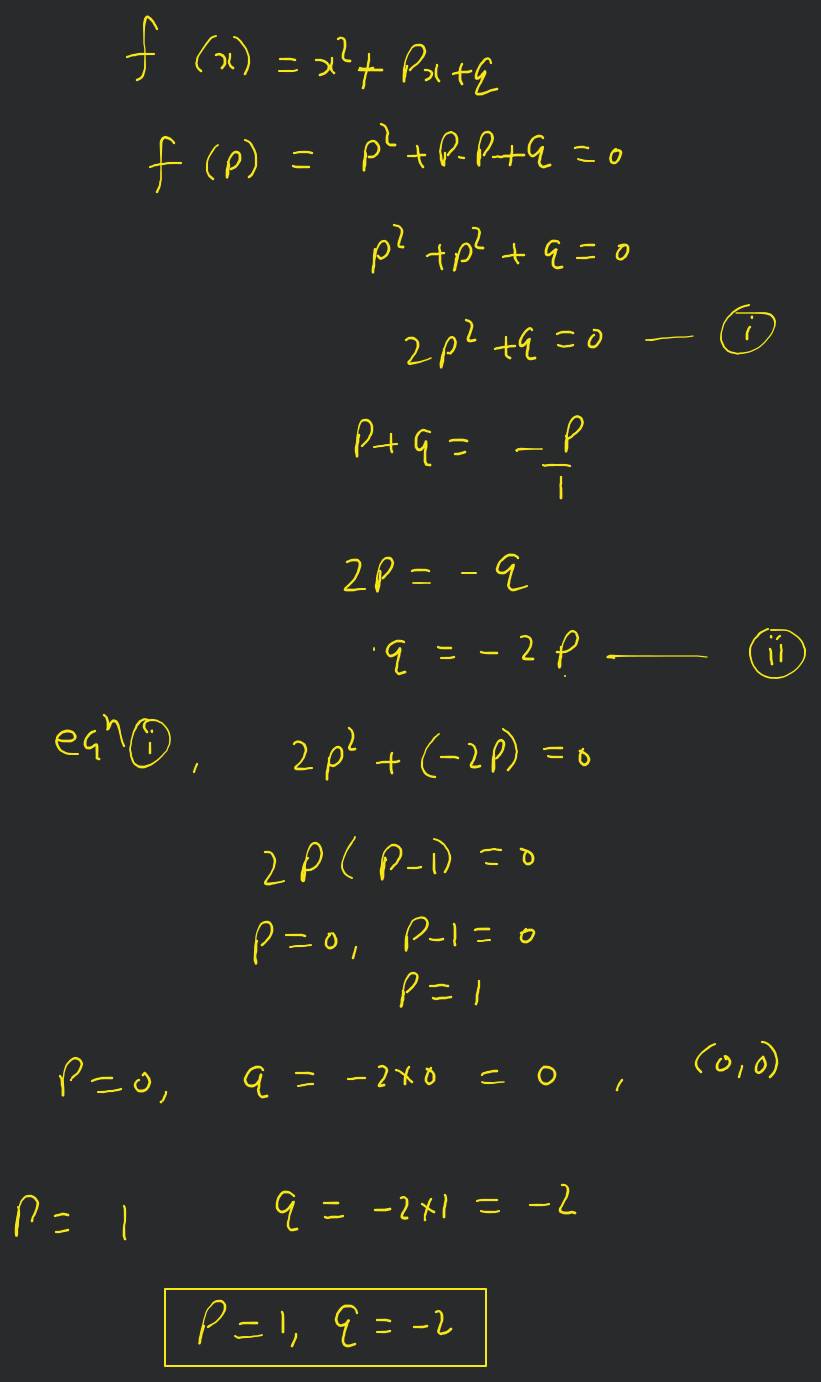 f (x) = x² + Px + q
f (p) = p² + P.P + q = 0
p² + p² + q = 0
2p² + q = 0 — (i)
P + q = -P/1
2P = - q
q = - 2 P —— (ii)
eqⁿ (i), 2p² + (-2P) = 0
2P (P-1) = 0
P = 0, P-1 = 0
P = 1
P = 0, q = -2×0 = 0 , (0,0)
P = 1 q = -2×1 = -2
P = 1, q = -2